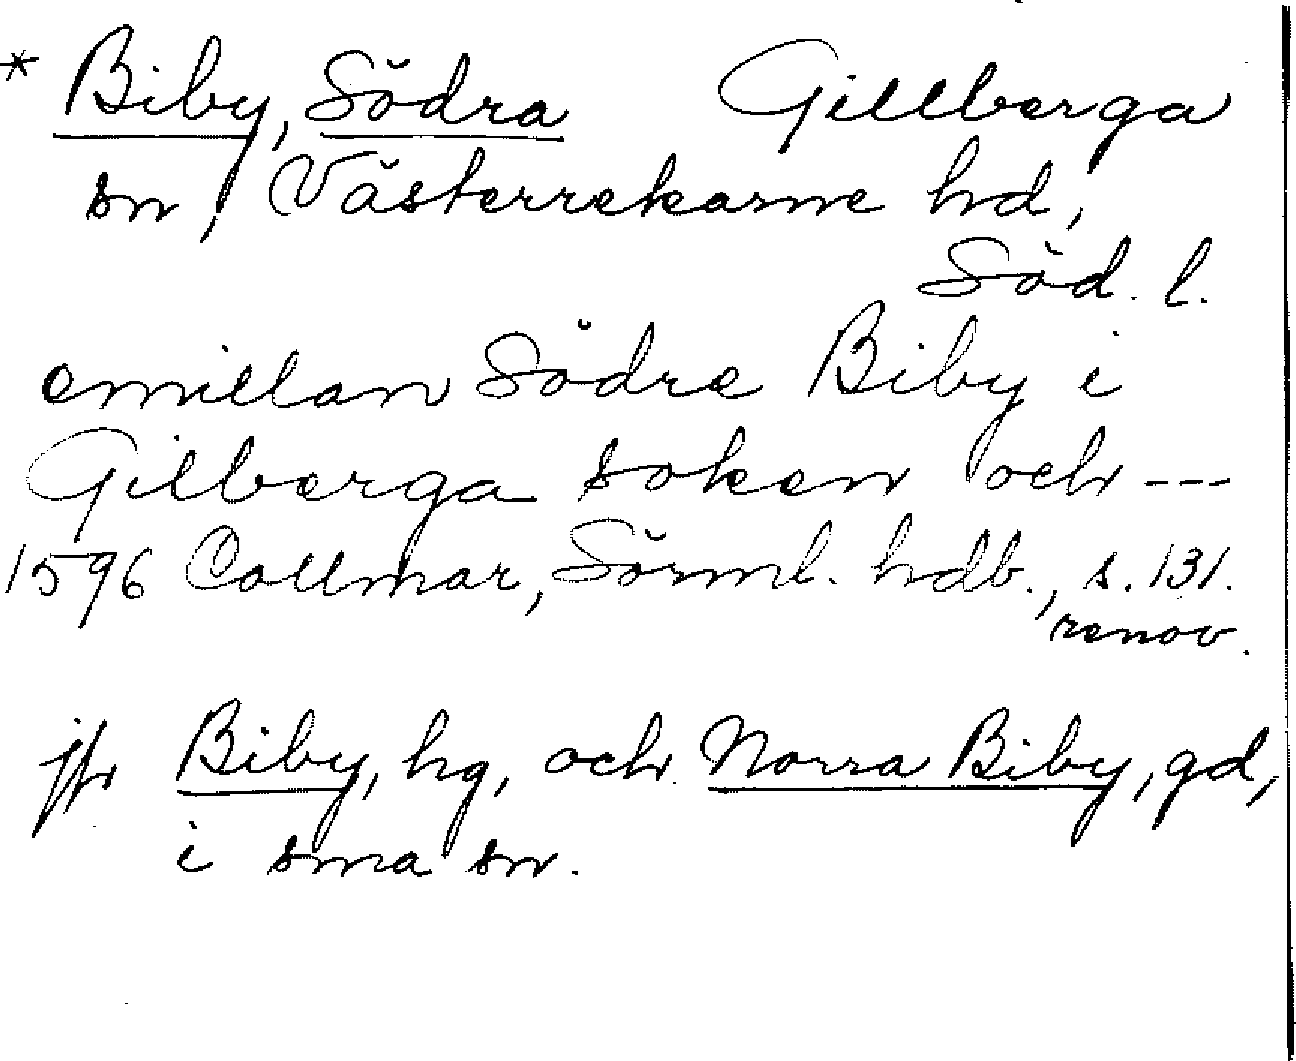 * Biby, Södra Gillberga
sn, Västerrekarne hd,
Söd. l.
emillan Södre Biby i
Gilberga soken och ---
1596 Collmar, Sörml. hdb., s. 131.
renov.
jfr Biby, hg, och Norra Biby, gd,
i sma sn.